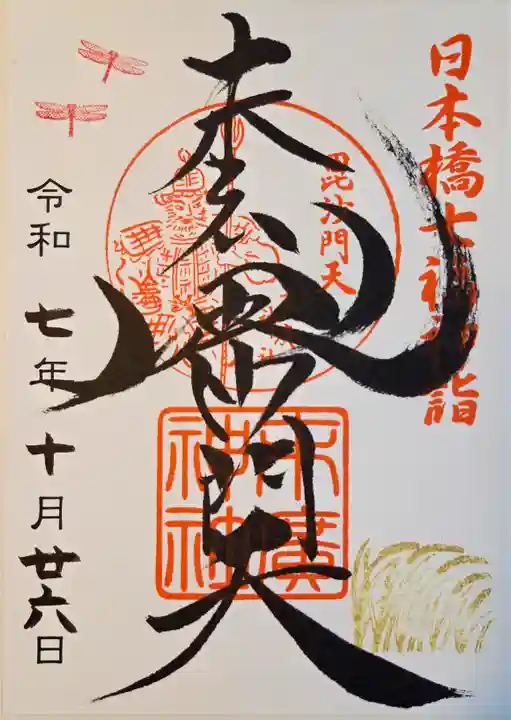 日本橋七福神詣
毘沙門天
奉拝
毘沙門天
末廣神社
令和七年十月廿六日